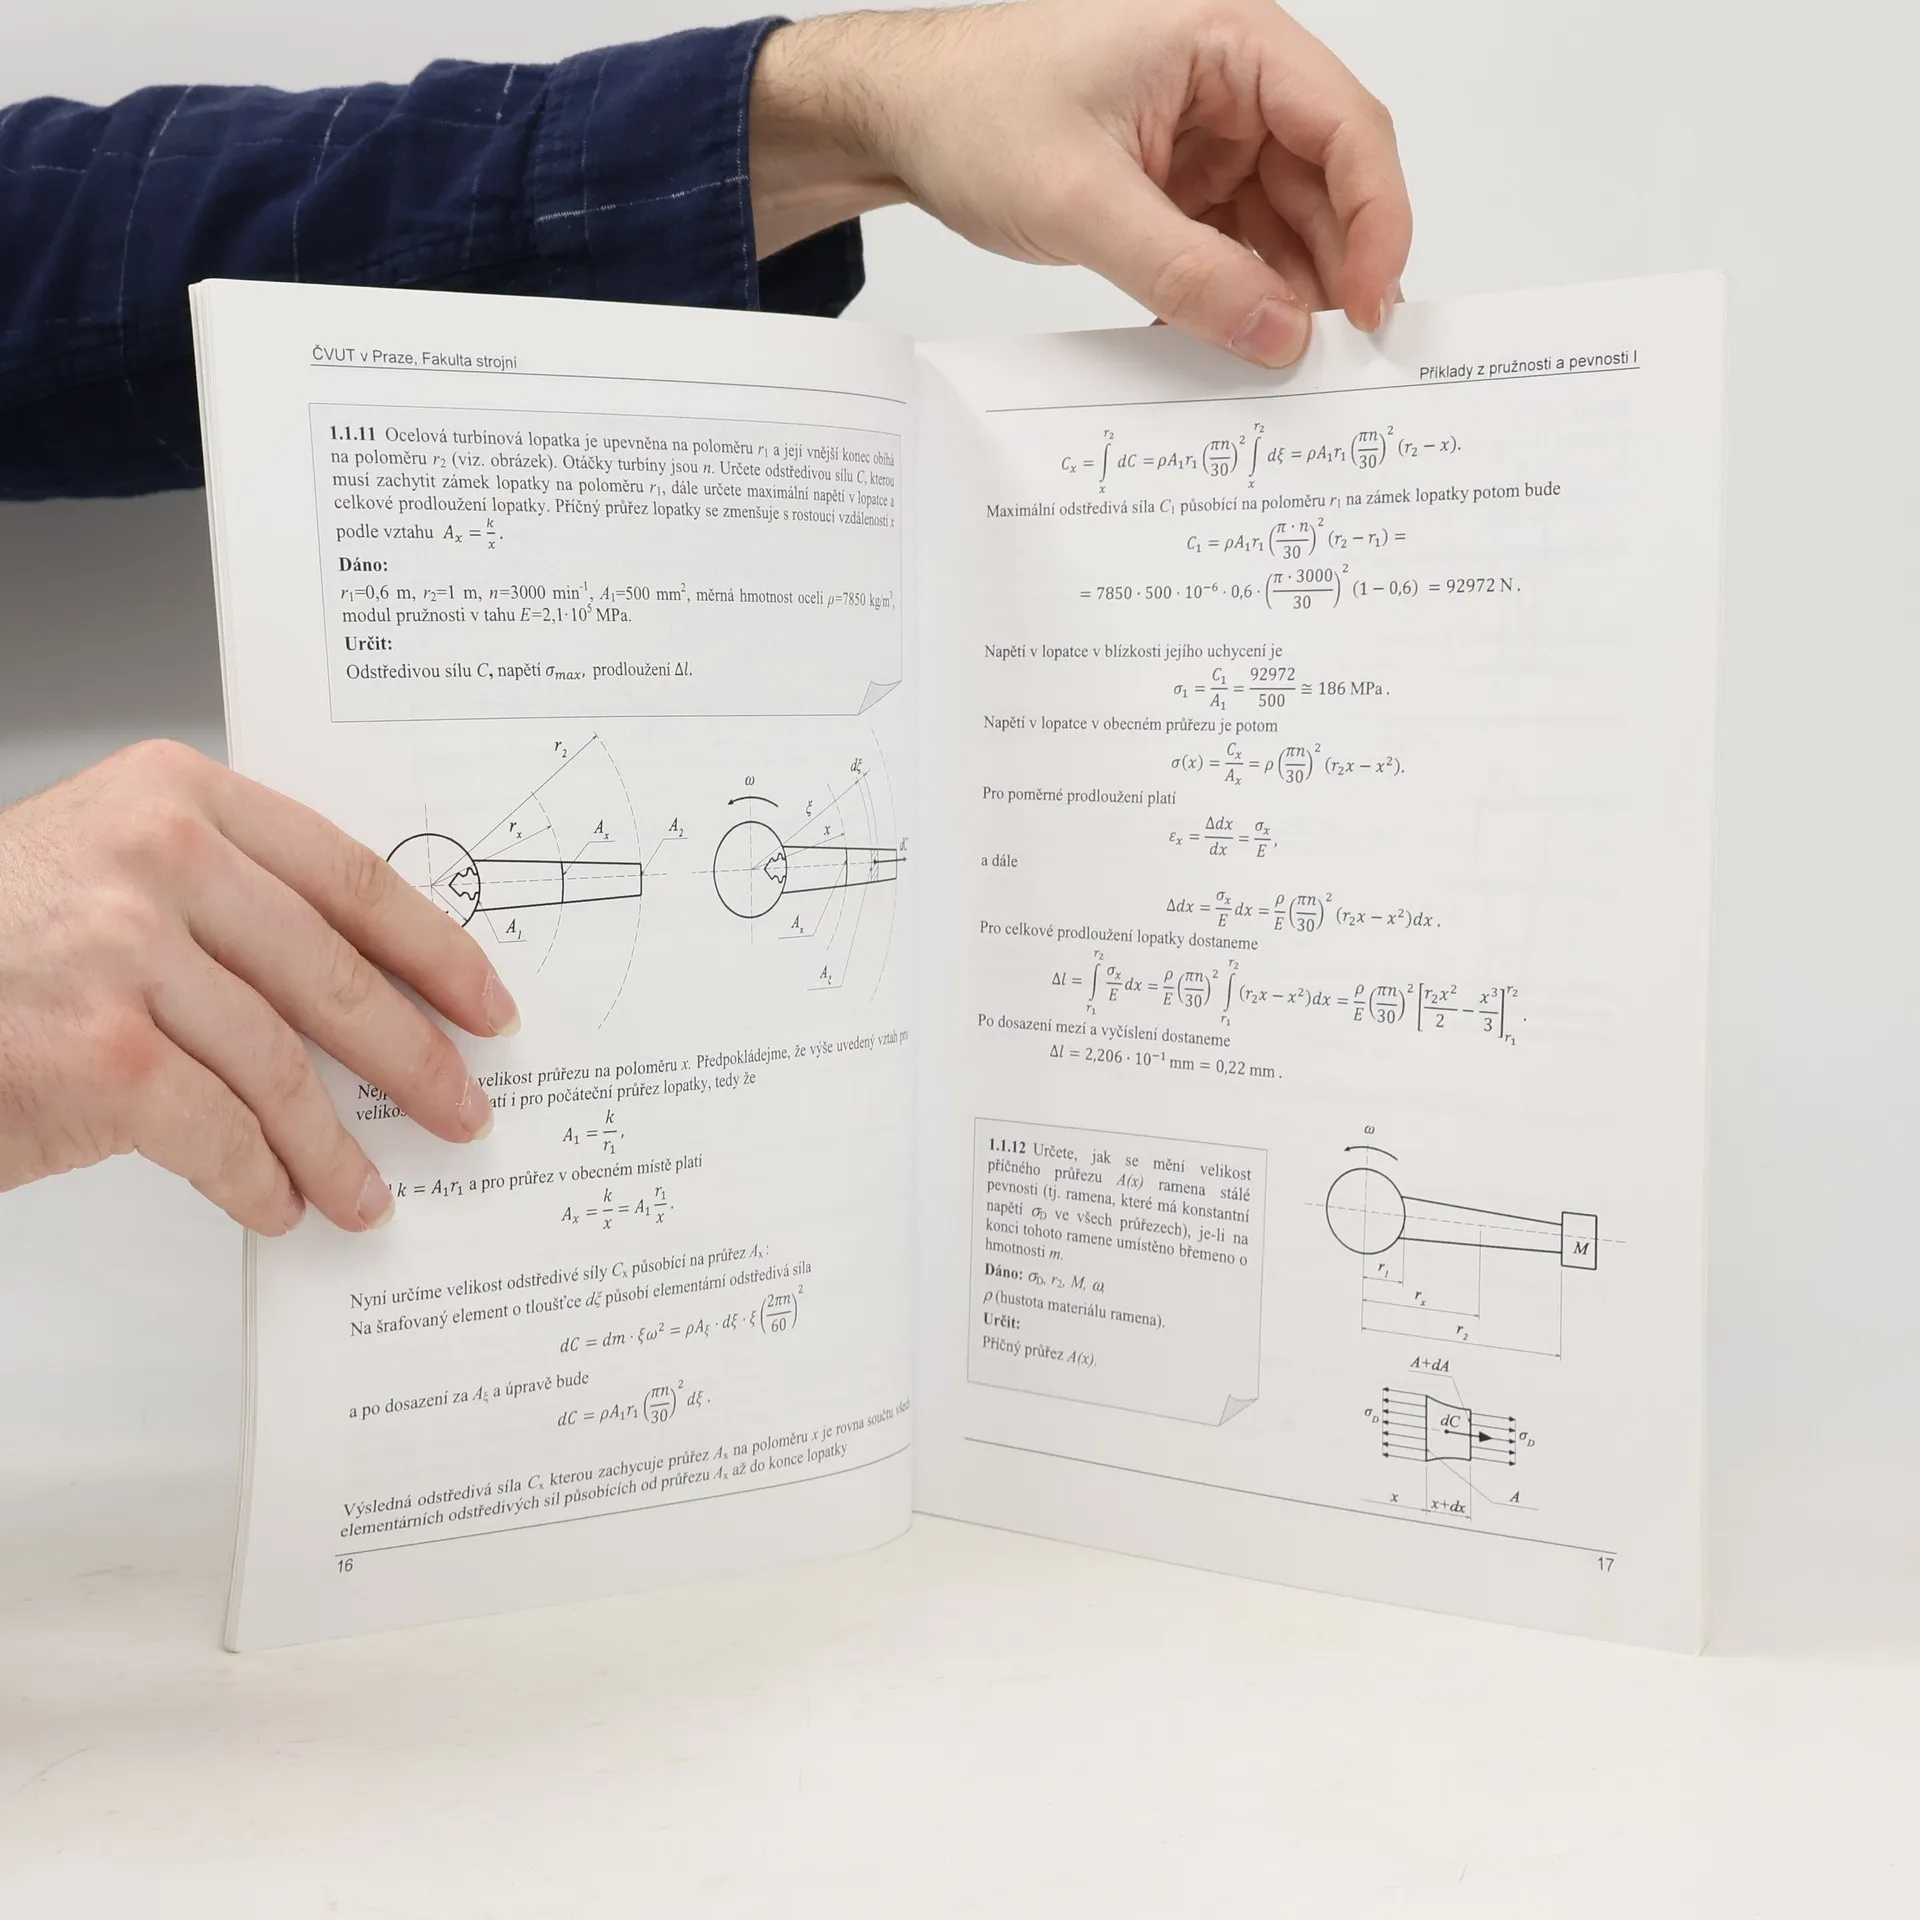 ČVUT v Praze, Fakulta strojní
1.1.11 Ocelová turbínová lopatka je upevněna na poloměru r₁ a její vnější konec obíhá
na poloměru r₂ (viz. obrázek). Otáčky turbíny jsou n. Určete odstředivou sílu C, kterou
musí zachytit zámek lopatky na poloměru r₁, dále určete maximální napětí v lopatce a
celkové prodloužení lopatky. Příčný průřez lopatky se zmenšuje s rostoucí vzdáleností x
podle vztahu Aₓ = k/x.
Dáno:
r₁=0,6 m, r₂=1 m, n=3000 min⁻¹, A₁=500 mm², měrná hmotnost oceli ρ=7850 kg/m³,
modul pružnosti v tahu E=2,1·10⁵ MPa.
Určit:
Odstředivou sílu C, napětí σmax, prodloužení Δl.
r₂
rₓ
Aₓ
A₂
A₁
ω
dξ
ξ
x
dC
Aₓ
Aξ
velikost průřezu na poloměru x. Předpokládejme, že výše uvedený vztah pro
i pro počáteční průřez lopatky, tedy že
A₁ = k/r₁,
k = A₁r₁ a pro průřez v obecném místě platí
Aₓ = k/x = A₁ r₁/x.
Nyní určíme velikost odstředivé síly Cₓ působící na průřez Aₓ:
Na šrafovaný element o tloušťce dξ působí elementární odstředivá síla
dC = dm · ξω² = ρAξ · dξ · ξ (2πn/60)²
a po dosazení za Aξ a úpravě bude
dC = ρA₁r₁ (πn/30)² dξ.
Výsledná odstředivá síla Cₓ kterou zachycuje průřez Aₓ na poloměru x je rovna součtu všech
elementárních odstředivých sil působících od průřezu Aₓ až do konce lopatky
16
Příklady z pružnosti a pevnosti I
Cₓ = ∫ₓ^r₂ dC = ρA₁r₁ (πn/30)² ∫ₓ^r₂ dξ = ρA₁r₁ (πn/30)² (r₂ − x).
Maximální odstředivá síla C₁ působící na poloměru r₁ na zámek lopatky potom bude
C₁ = ρA₁r₁ (π · n/30)² (r₂ − r₁) =
= 7850 · 500 · 10⁻⁶ · 0,6 · (π · 3000/30)² (1 − 0,6) = 92972 N.
Napětí v lopatce v blízkosti jejího uchycení je
σ₁ = C₁/A₁ = 92972/500 ≅ 186 MPa.
Napětí v lopatce v obecném průřezu je potom
σ(x) = Cₓ/Aₓ = ρ (πn/30)² (r₂x − x²).
Pro poměrné prodloužení platí
εₓ = Δdx/dx = σₓ/E,
a dále
Δdx = σₓ/E dx = ρ/E (πn/30)² (r₂x − x²)dx.
Pro celkové prodloužení lopatky dostaneme
Δl = ∫r₁^r₂ σₓ/E dx = ρ/E (πn/30)² ∫r₁^r₂ (r₂x − x²)dx = ρ/E (πn/30)² [r₂x²/2 − x³/3]r₁^r₂.
Po dosazení mezí a vyčíslení dostaneme
Δl = 2,206 · 10⁻¹ mm = 0,22 mm.
1.1.12 Určete, jak se mění velikost
příčného průřezu A(x) ramena stálé
pevnosti (tj. ramena, které má konstantní
napětí σD ve všech průřezech), je-li na
konci tohoto ramene umístěno břemeno o
hmotnosti m.
Dáno: σD, r₂, M, ω,
ρ (hustota materiálu ramena).
Určit:
Příčný průřez A(x).
ω
M
r₁
rₓ
r₂
A+dA
σD
dC
σD
x
x+dx
A
17